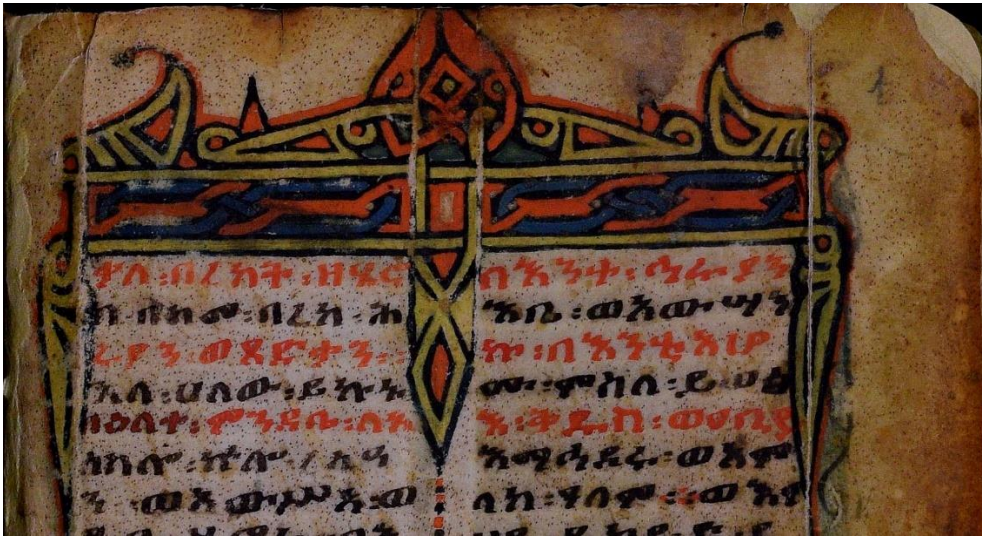 ቃለ፡በረከት፡ዘሄኖ
ክ፡በከመ፡ባረከ፡ሕ
ሩያን፡ወጻድቃን፡
እለ፡ሀለው፡ይኩኑ
በዕለተ፡ምንዳቤ፡ለአ
ሰስሎ፡ኵሎ፡ረሲዓ
ን፡ወአውሥአ፡ወ
በእንተ፡ኅሩያን
እቤ፡ወአውሣእ
ኩ፡በእንቲአሆ
ሙ፡ምስለ፡ይወፅ
እ፡ቅዱስ፡ወዐቢይ
እማኅደሩ፡ወአም
ላከ፡ዓለም፡፡ወእም